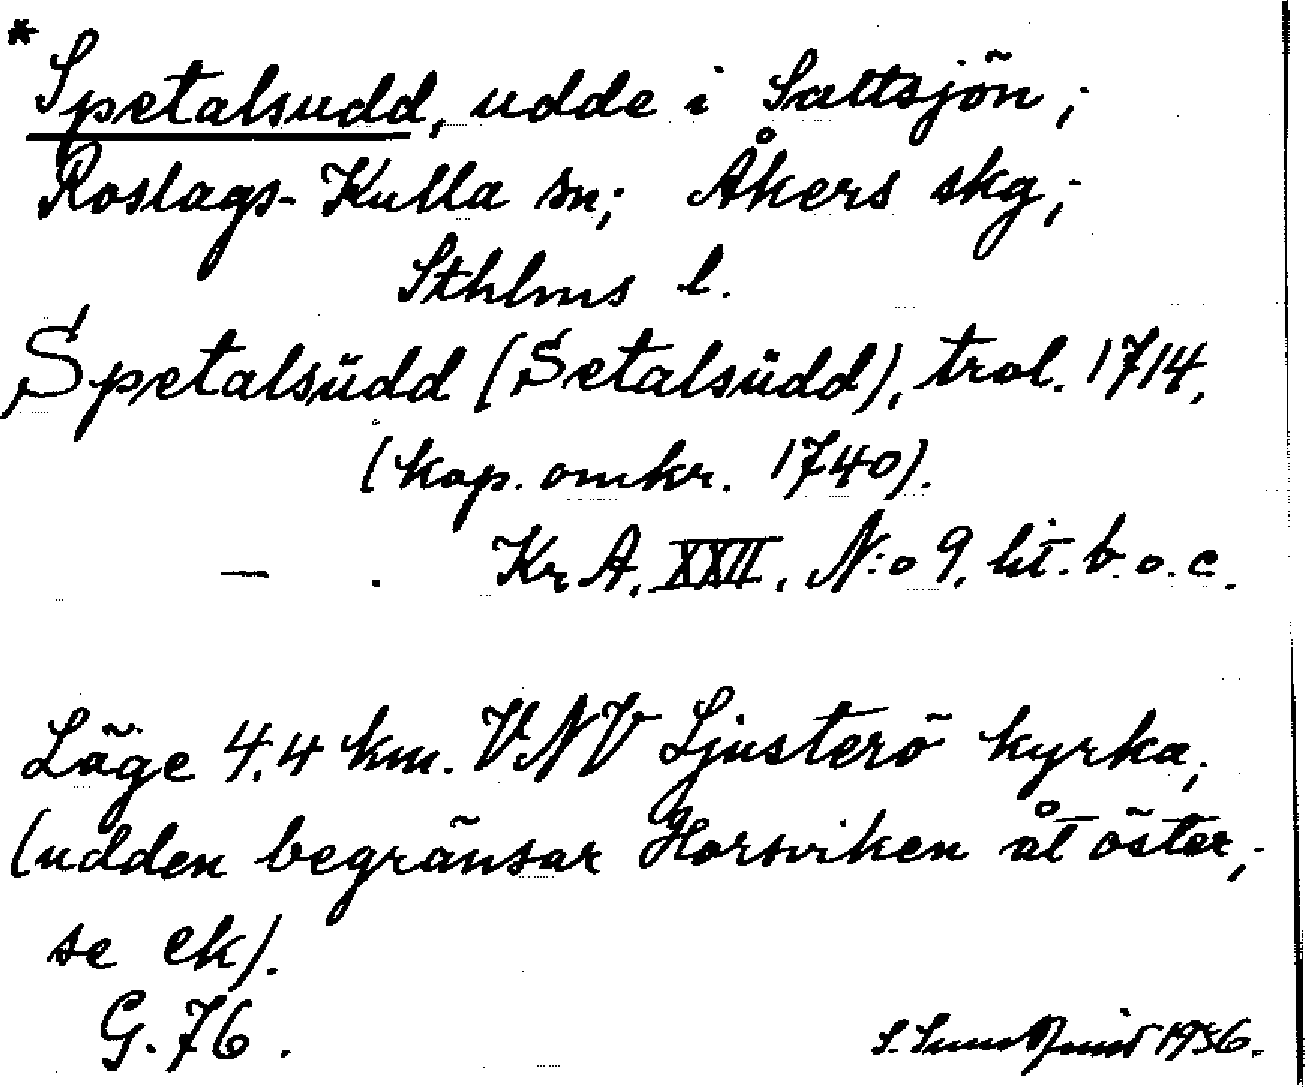 * Spetalsudd, udde i Saltsjön;
Roslags-Kulla sn; Åkers skg;
Sthlms l.
Spetalsüdd (Setalsüdd), trol. 1714,
(kop. omkr. 1740).
— . Kr A, XXII, N:o 9, lit. b. o. c.
Läge 4,4 km. VNV Ljusterö kyrka;
(udden begränsar Horsviken åt öster;
se ek).
G. 76. S. 1956.